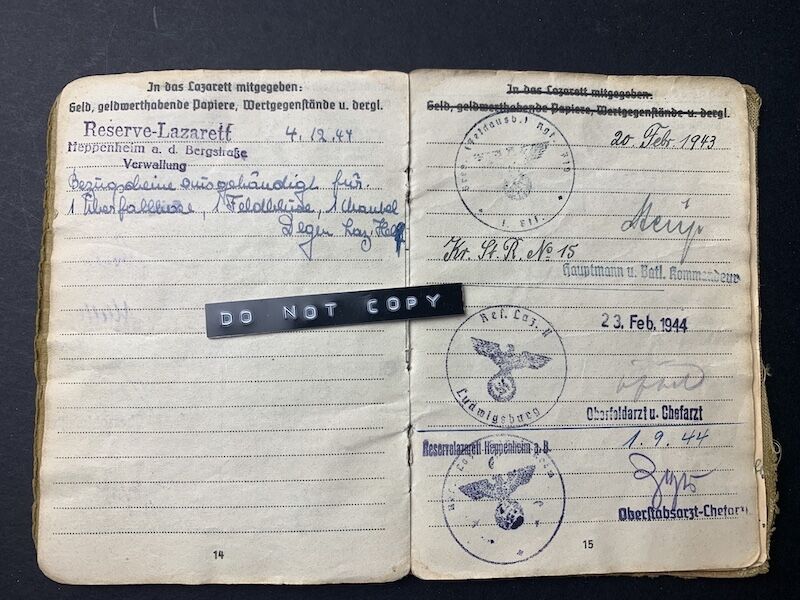 In das Lazarett mitgegeben:
Geld, geldwerthabende Papiere, Wertgegenstände u. dergl.
Reserve-Lazarett
4.12.44
Heppenheim a. d. Bergstraße
Verwaltung
Bezugscheine ausgehändigt für:
1 1 Feldbluse, 1 Mantel
DO NOT COPY
14
In das Lazarett mitgegeben:
Geld, geldwerthabende Papiere, Wertgegenstände u. dergl.
20. Febr. 1943
Kr. St. R. No 15
Hauptmann u. Batl. Kommandeur
23. Feb. 1944
Ref. Laz. II
Ludwigsburg
Oberfeldarzt u. Chefarzt
1.9.44
Reservelazarett Heppenheim a. B.
Oberstabsarzt-Chefarzt
15